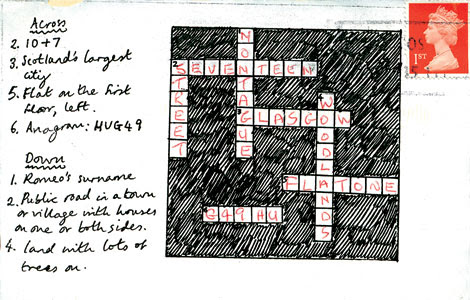 Across
2. 10+7
3. Scotland's largest
city
5. Flat on the first
floor, left.
6. Anagram: HUG49
Down
1. Romeo's surname
2. Public road in a town
or village with houses
on one or both sides.
4. land with lots of
trees on.
MONTAGUE
2 SEVENTEEN
STREET
GLASGOW
WOODLANDS
5 FLATONE
G49 HU
1ST